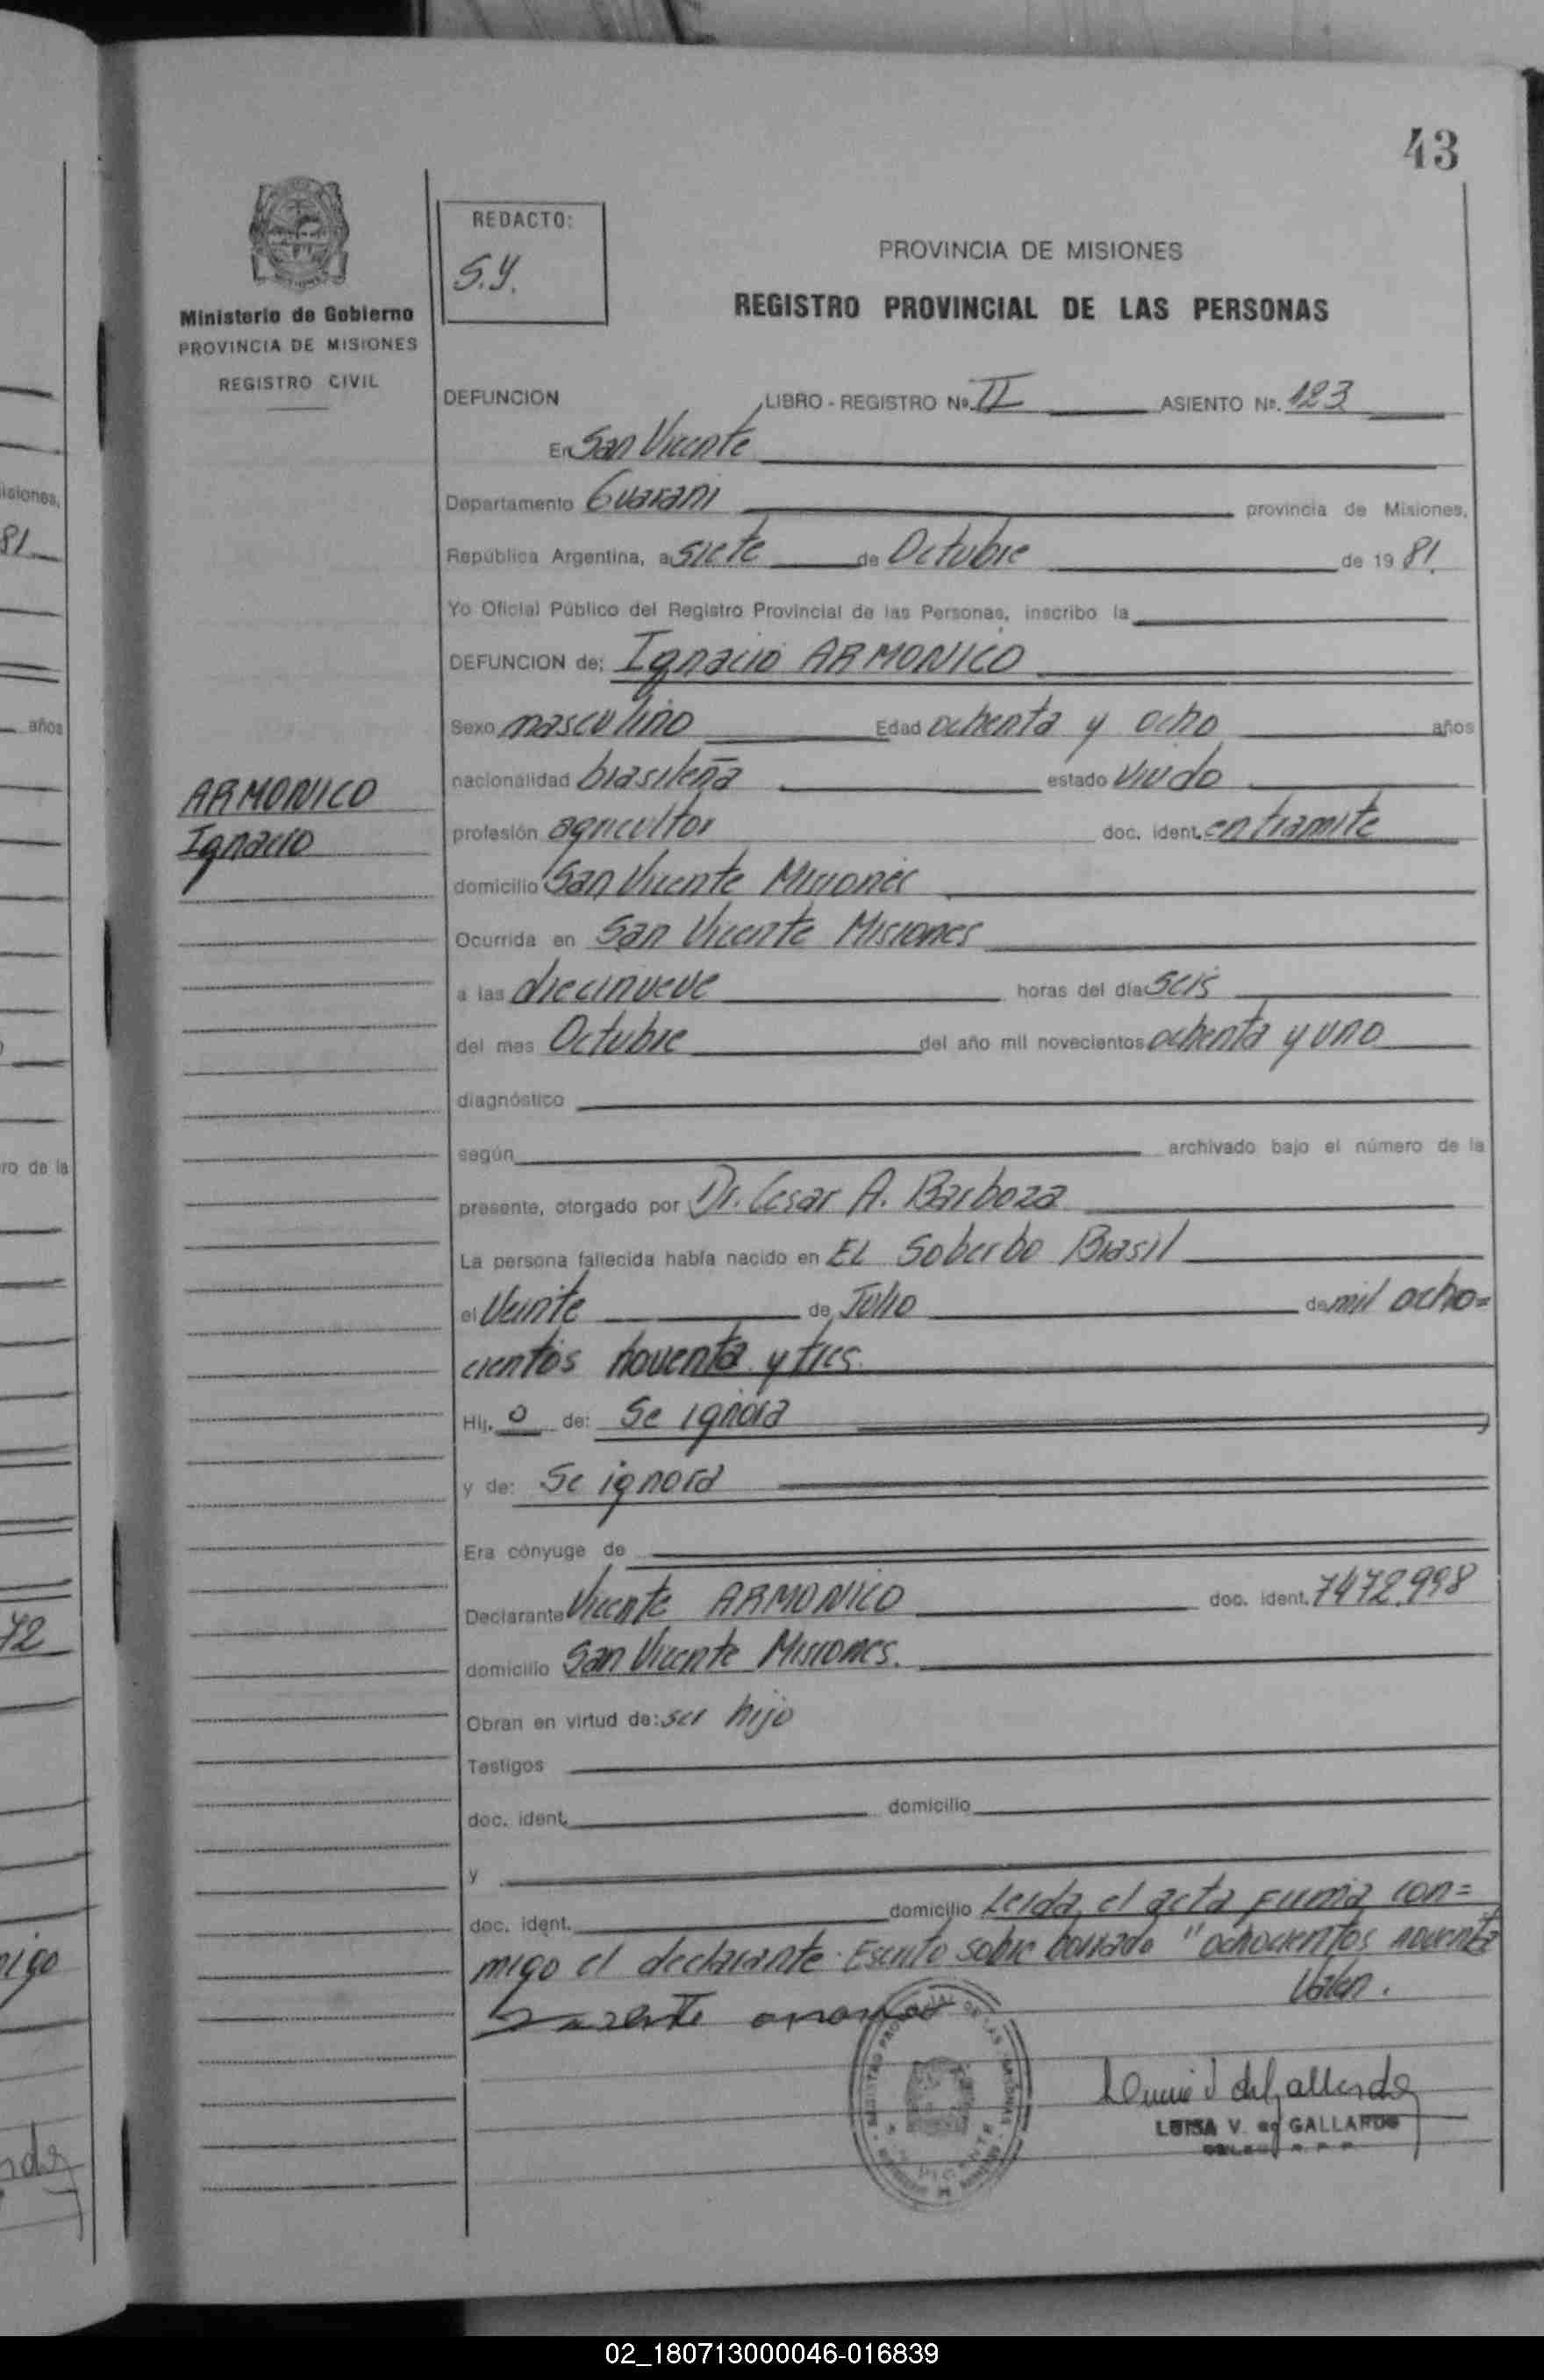 43
REDACTO:
S.Y.
Ministerio de Gobierno
PROVINCIA DE MISIONES
REGISTRO CIVIL
PROVINCIA DE MISIONES
REGISTRO PROVINCIAL DE LAS PERSONAS
DEFUNCION LIBRO - REGISTRO Nº. II ASIENTO Nº. 123
En San Vicente
Departamento Guarani provincia de Misiones,
República Argentina, a siete de Octubre de 19 81.
Yo Oficial Público del Registro Provincial de las Personas, inscribo la
DEFUNCION de: Ignacio ARMONICO
Sexo masculino Edad ochenta y ocho años
nacionalidad brasileña estado viudo
ARMONICO
Ignacio
profesión agricultor doc. ident. en tramite
domicilio San Vicente Misiones
Ocurrida en San Vicente Misiones
a las diecinueve horas del día seis
del mes Octubre del año mil novecientos ochenta y uno
diagnóstico
según archivado bajo el número de la
presente, otorgado por Dr. Cesar A. Barboza
La persona fallecida había nacido en EL Soberbo Brasil
el Veinte de Julio de mil ocho=
cientos noventa y tres.
Hij. o de: Se ignora
y de: Se ignora
Era cónyuge de
Declarante Vicente ARMONICO doc. ident. 7472.998
domicilio San Vicente Misiones.
Obran en virtud de: ser hijo
Testigos
doc. ident. domicilio
y
doc. ident. domicilio Leida el acta firma con=
migo el declarante. Escrito sobre borrado "ochocientos noventa
Valen.
LUISA V. de GALLARDO
isiones,
81
años
ro de la
72
migo
02_180713000046-016839